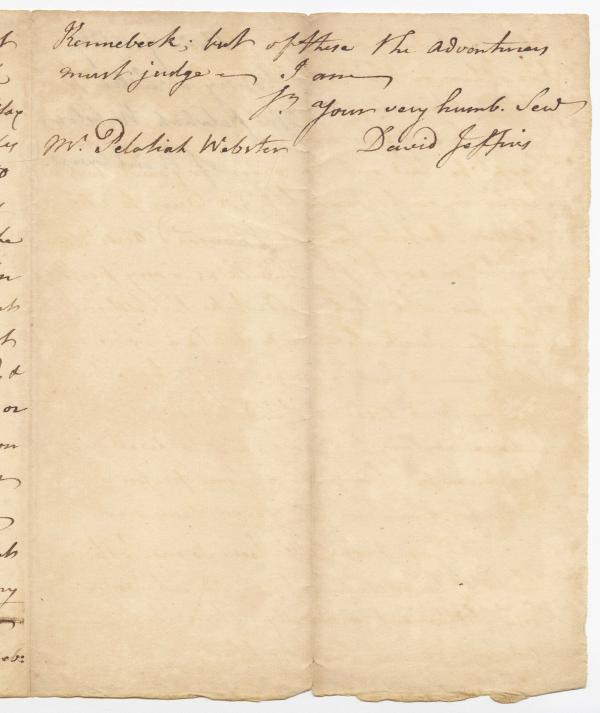 Kennebeck; but of these the adventurers
must judge — I am
Sr. Your very humb. Serv
Mr. Pelatiah Webster David Jeffries